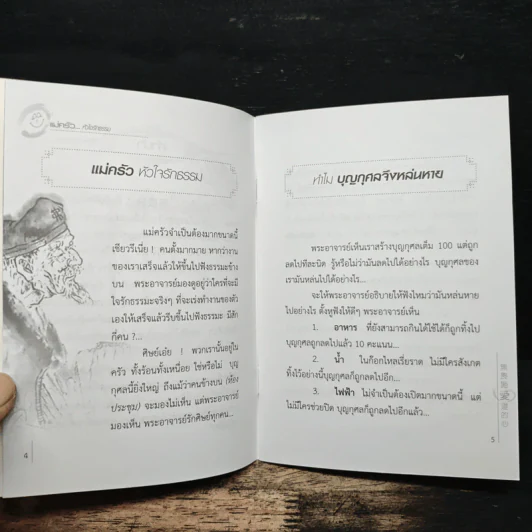 แม่ครัว... หัวใจรักธรรม
แม่ครัว หัวใจรักธรรม
แม่ครัวจำเป็นต้องมากขนาดนี้
เชียวรึเนี่ย ! คนตั้งมากมาย หากว่างาน
ของเราเสร็จแล้วให้ขึ้นไปฟังธรรมะข้าง
บน พระอาจารย์มองดูอยู่ว่าใครที่จะมี
ใจรักธรรมะจริงๆ ที่จะเร่งทำงานของตัว
เองให้เสร็จแล้วรีบขึ้นไปฟังธรรมะ มีสัก
กี่คน ?...
ศิษย์เอ๋ย ! พวกเรานั้นอยู่ใน
ครัว ทั้งร้อนทั้งเหนื่อย ใช่หรือไม่ บุญ
กุศลนี้ยิ่งใหญ่ ถึงแม้ว่าคนข้างบน (ห้อง
ประชุม) จะมองไม่เห็น แต่พระอาจารย์
มองเห็น พระอาจารย์รักศิษย์ทุกคน...
4
ทำไม บุญกุศลจึงหล่นหาย
พระอาจารย์เห็นเราสร้างบุญกุศลเต็ม 100 แต่ถูก
ลดไปทีละนิด รู้หรือไม่ว่ามันลดไปได้อย่างไร บุญกุศลของ
เรามันหล่นไปได้อย่างไร...
จะให้พระอาจารย์อธิบายให้ฟังไหมว่ามันหล่นหาย
ไปอย่างไร ตั้งหูฟังให้ดีๆ พระอาจารย์เห็น
1. อาหาร ที่ยังสามารถกินได้ใช้ได้ก็ถูกทิ้งไป
บุญกุศลถูกลดไปแล้ว 10 คะแนน...
2. น้ำ ในก๊อกไหลเรี่ยราด ไม่มีใครสังเกต
ทิ้งไว้อย่างนี้บุญกุศลก็ถูกลดไปอีก...
3. ไฟฟ้า ไม่จำเป็นต้องเปิดมากขนาดนี้ แต่
ไม่มีใครช่วยปิด บุญกุศลก็ถูกลดไปอีกแล้ว...
5